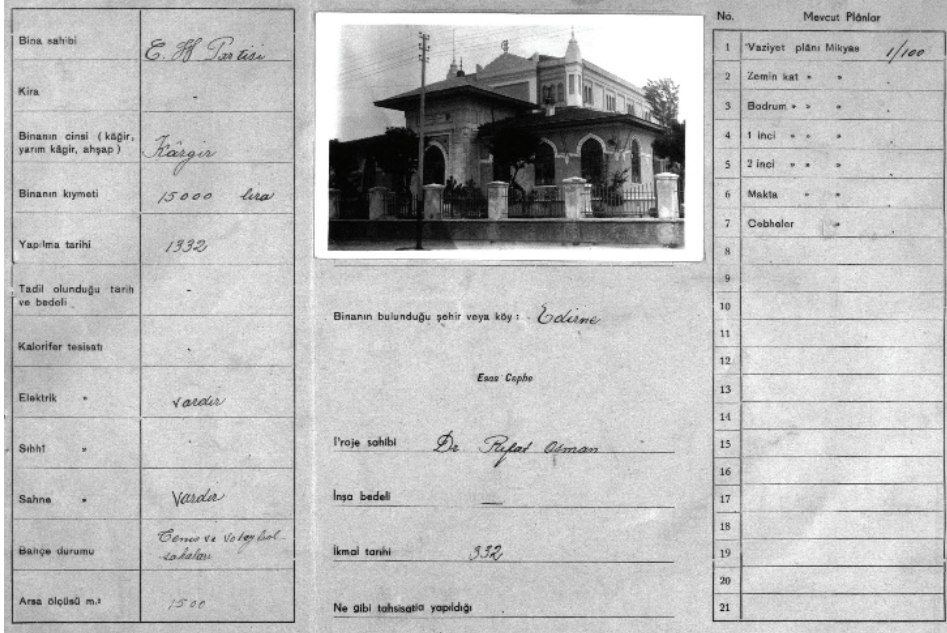 Bina sahibi C. H. Partisi
Kira -
Binanın cinsi (kâğir,
yarım kâgir, ahşap) Kârgir
Binanın kıymeti 15000 lira
Yapılma tarihi 1332
Tadil olunduğu tarih
ve bedeli -
Kalorifer tesisatı -
Elektrik " vardır
Sıhhî " -
Sahne " Vardır
Bahçe durumu Tenis ve voleybol
sahaları
Arsa ölçüsü m.² 1500
Binanın bulunduğu şehir veya köy : Edirne
Esas Cephe
Proje sahibi Dr Rifat Osman
İnşa bedeli —
İkmal tarihi 332
Ne gibi tahsisatla yapıldığı
No. Mevcut Plânlar
1 Vaziyet plânı Mikyas 1/100
2 Zemin kat " "
3 Bodrum " " "
4 1 inci " " "
5 2 inci " " "
6 Makta " "
7 Cebheler "
8
9
10
11
12
13
14
15
16
17
18
19
20
21